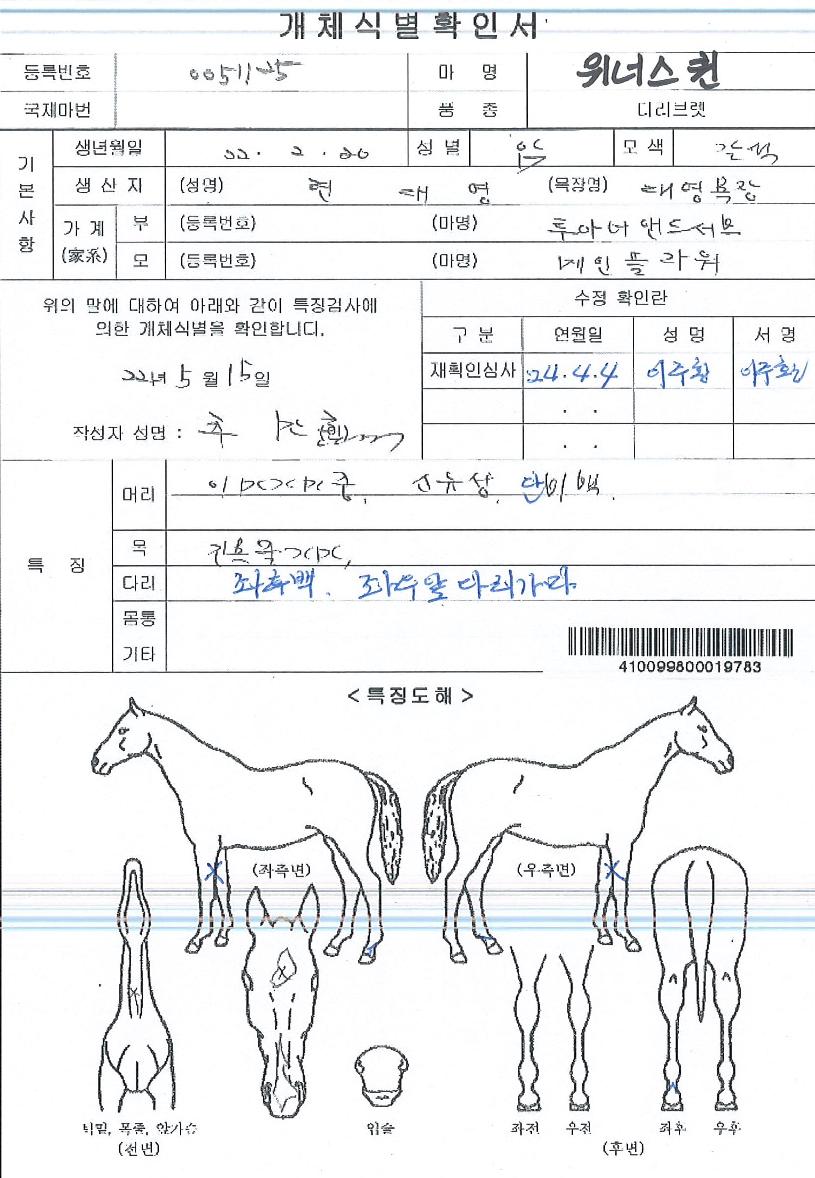 개체식별확인서
등록번호 0051175 마 명 위너스퀸
국제마번 품 종 더러브렛
기본사항
생년월일 22. 2. 20 성별 암 모색 갈색
생산지 (성명) 현 태 영 (목장명) 태영목장
가계 (家系) 부 (등록번호) (마명) 투아너앤드서브
모 (등록번호) (마명) 메인플라워
위의 말에 대하여 아래와 같이 특징검사에
의한 개체식별을 확인합니다.
22년 5월 15일
작성자 성명 :
수정 확인란
구 분 연월일 성 명 서 명
재확인심사 '24.4.4
. .
. .
특 징
머리
목
다리 좌후백. 좌우앞다리가마
몸통
기타
410099800019783
< 특징도해 >
(좌측면) (우측면)
턱밑, 목줄, 앞가슴 입술 좌전 우전 좌후 우후
(전면) (후면)